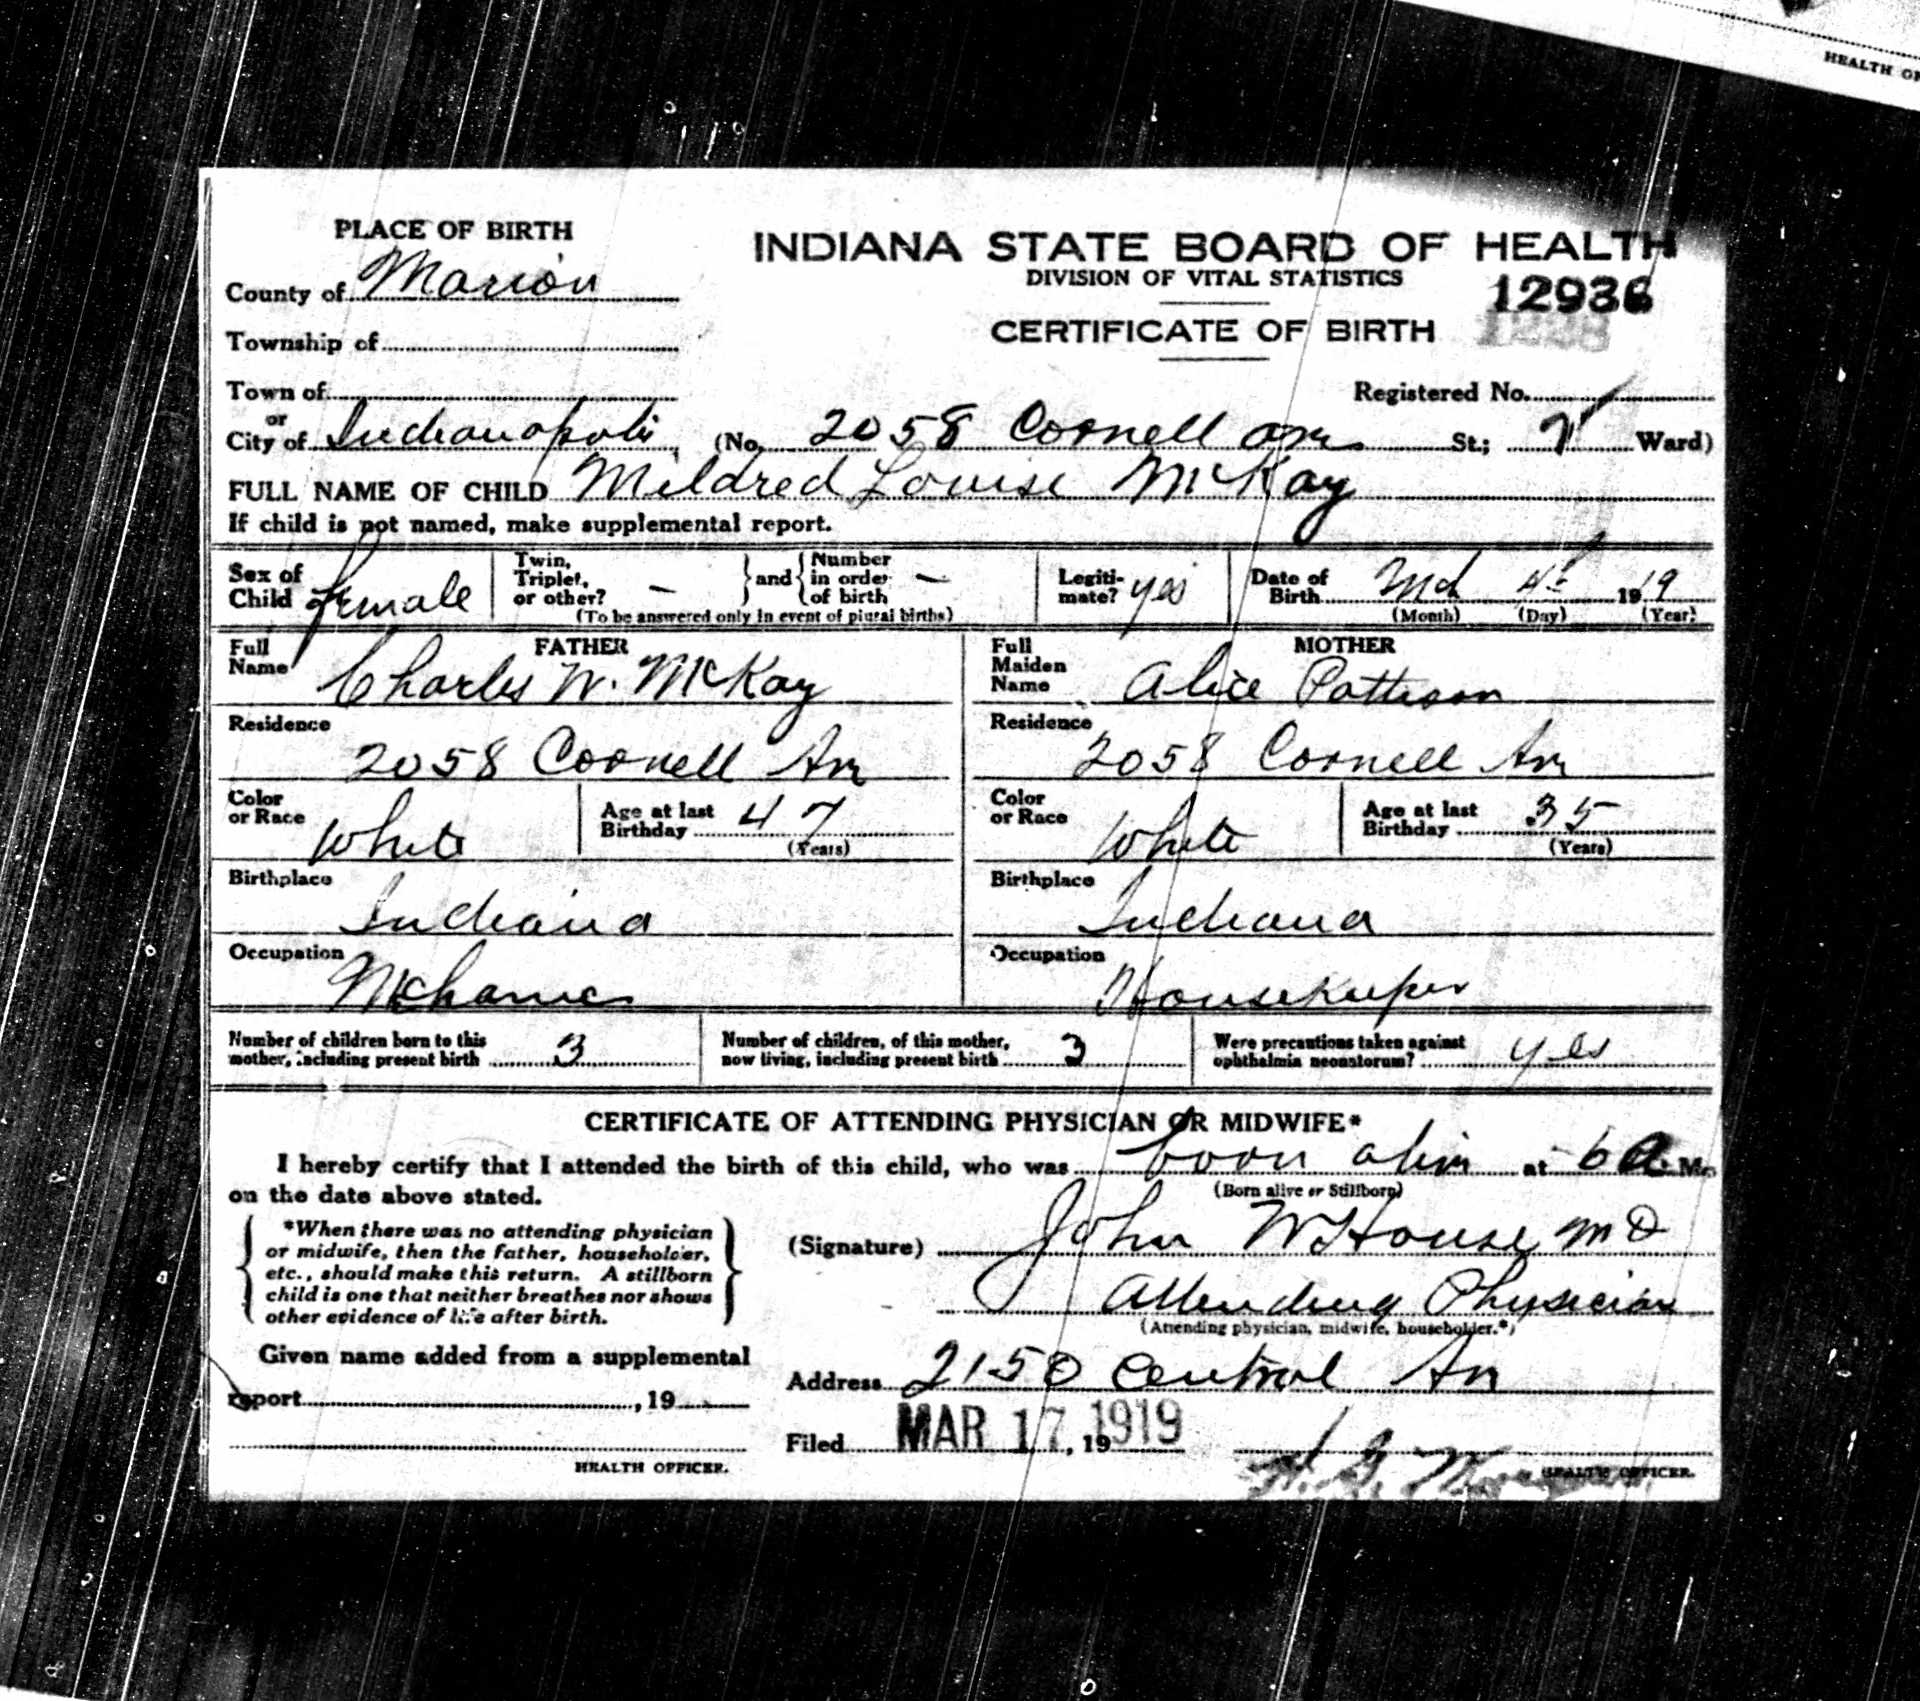 HEALTH OF
PLACE OF BIRTH
INDIANA STATE BOARD OF HEALTH
DIVISION OF VITAL STATISTICS
12936
CERTIFICATE OF BIRTH
County of Marion
Township of
Town of
Registered No.
or
City of Indianapolis (No. 2058 Cornell Ave St.; Ward)
FULL NAME OF CHILD Mildred Louise McKay
If child is not named, make supplemental report.
Sex of Child female
Twin, Triplet, or other? — and Number in order of birth —
(To be answered only in event of plural births)
Legiti-mate? yes
Date of Birth Mch 4th 1919
(Month) (Day) (Year)
FATHER
Full Name Charles W. McKay
MOTHER
Full Maiden Name Alice Pattison
Residence 2058 Cornell Av
Residence 2058 Cornell Av
Color or Race White
Age at last Birthday 47 (Years)
Color or Race White
Age at last Birthday 35 (Years)
Birthplace Indiana
Birthplace Indiana
Occupation Mechanic
Occupation Housekeeper
Number of children born to this mother, including present birth 3
Number of children, of this mother, now living, including present birth 3
Were precautions taken against ophthalmia neonatorum? yes
CERTIFICATE OF ATTENDING PHYSICIAN OR MIDWIFE*
I hereby certify that I attended the birth of this child, who was born alive at 6 A. M.
(Born alive or Stillborn)
on the date above stated.
*When there was no attending physician
or midwife, then the father, householder,
etc., should make this return. A stillborn
child is one that neither breathes nor shows
other evidence of life after birth.
(Signature) John W House MD
Attending Physician
(Attending physician, midwife, householder.*)
Given name added from a supplemental
report , 19
HEALTH OFFICER.
Address 2150 Central Av
Filed MAR 17, 191919
HEALTH OFFICER.